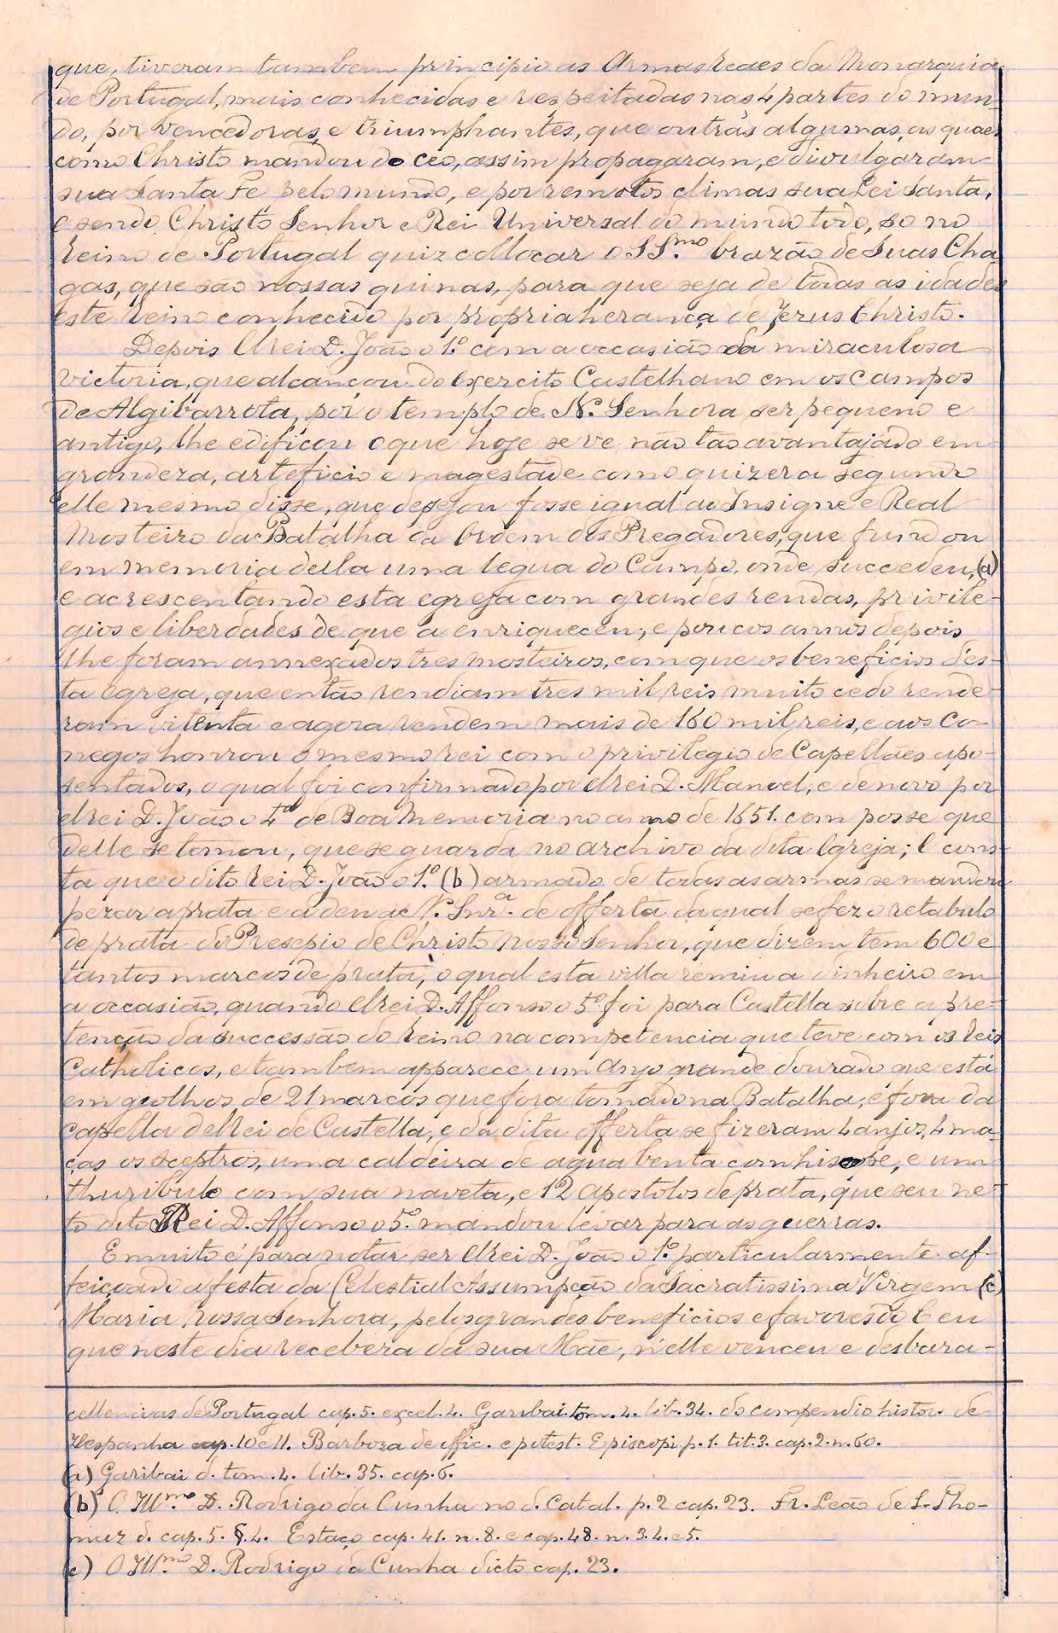 que, tiveram tambem principio as Armas Reaes da Monarquia
de Portugal, mais conhecidas e respeitadas nas 4 partes do mun-
do, por vencedoras, e triumphantes, que outras algumas, as quaes
como Christo mandou do ceo, assim propagaram, e divulgaram
sua Santa Fe pelo mundo, e por remotos climas sua Lei Santa,
e sendo Christo Senhor e Rei Universal do mundo todo, so no
Reino de Portugal quiz collocar o SS.mo brazão de Suas Cha
gas, que são nossas quinas, para que seja de todas as idades
este reino conhecido por propria herança de Jezus Christo.
Depois Elrei D. João o 1.º com a occasião da miraculosa
victoria, que alcançou do Exercito Castelhano em os campos
de Algibarrota, por o templo de N.ª Senhora ser pequeno e
antigo, lhe edificou o que hoje se ve não tão avantajado em
grandeza, arteficio e magestade como quizera segundo
elle mesmo disse, que desejou fosse igual ao Insigne e Real
Mosteiro da Batalha da Ordem dos Pregadores, que fundou
em memoria della uma legua do Campo, onde succedeu, (a)
e acrescentando esta egreja com grandes rendas, privile-
gios e liberdades de que a enriqueceu, e poucos annos depois
lhe foram annexados tres mosteiros, com que os beneficios des-
ta Egreja, que então rendiam tres mil reis muito cedo rende-
ram oitenta e agora rendem mais de 160 mil reis, e aos Co-
negos honrou o mesmo rei com o privilegio de Capellães apo-
sentados, o qual foi confirmado por elrei D. Manoel, e de novo por
elrei D. João o 4º de Boa Memoria no anno de 1651. com posse que
delle se tomou, que se guarda no archivo da dita Egreja; E cons-
ta que o dito Rei D. João o 1.º (b) armado de todas as armas se mandou
pezar a prata e a deu a N. Snr.ª de offerta da qual se fez o retabulo
de prata do Presepio de Christo Nosso Senhor, que dizem tem 600 e
tantos marcos de prata, o qual esta villa remiu a dinheiro em
a occasião, quando Elrei D. Affonso o 5º foi para Castella sobre a pre-
tenção da successão do Reino na competencia que teve com os Reis
Catholicos, e tambem apparece um Anjo grande dourado que está
em geolhos de 21 marcos que fora tomado na Batalha, e fora da
capella delRei de Castella, e da dita offerta se fizeram 4 anjos, 4 ma-
ças os sceptros, uma caldeira de agua benta com hisope, e um
thuribulo com sua naveta, e 12 Apostolos de prata, que seu ne-
to dito Rei D. Affonso o 5.º mandou levar para as guerras.
E muito é para notar ser Elrei D. João o 1.º particularmente af-
feiçoado a festa da Celestial Assumpção da Sacratissima Virgem (c)
Maria Nossa Senhora, pelos grandes beneficios e favores do Ceu
que neste dia recebera da sua Mãe, n'elle venceu e desbara-
cellencias de Portugal cap. 5. excel. 4. Garibai tom. 4. lib. 34. do compendio histor. de
Hespanha cap. 10 e 11. Barboza de offic. e potest. Episcopi p. 1. tit. 3. cap. 2. n. 60.
(a) Garibai d. tom. 4. lib. 35. cap. 6.
(b) O Ill.mo D. Rodrigo da Cunha no d. Catal. p. 2 cap. 23. Fr. Leão de S. Tho-
maz d. cap. 5. §. 4. Estaço cap. 41. n. 8. e cap. 48. n. 3. 4. e 5.
(c) O Ill.mo D. Rodrigo da Cunha dicto cap. 23.